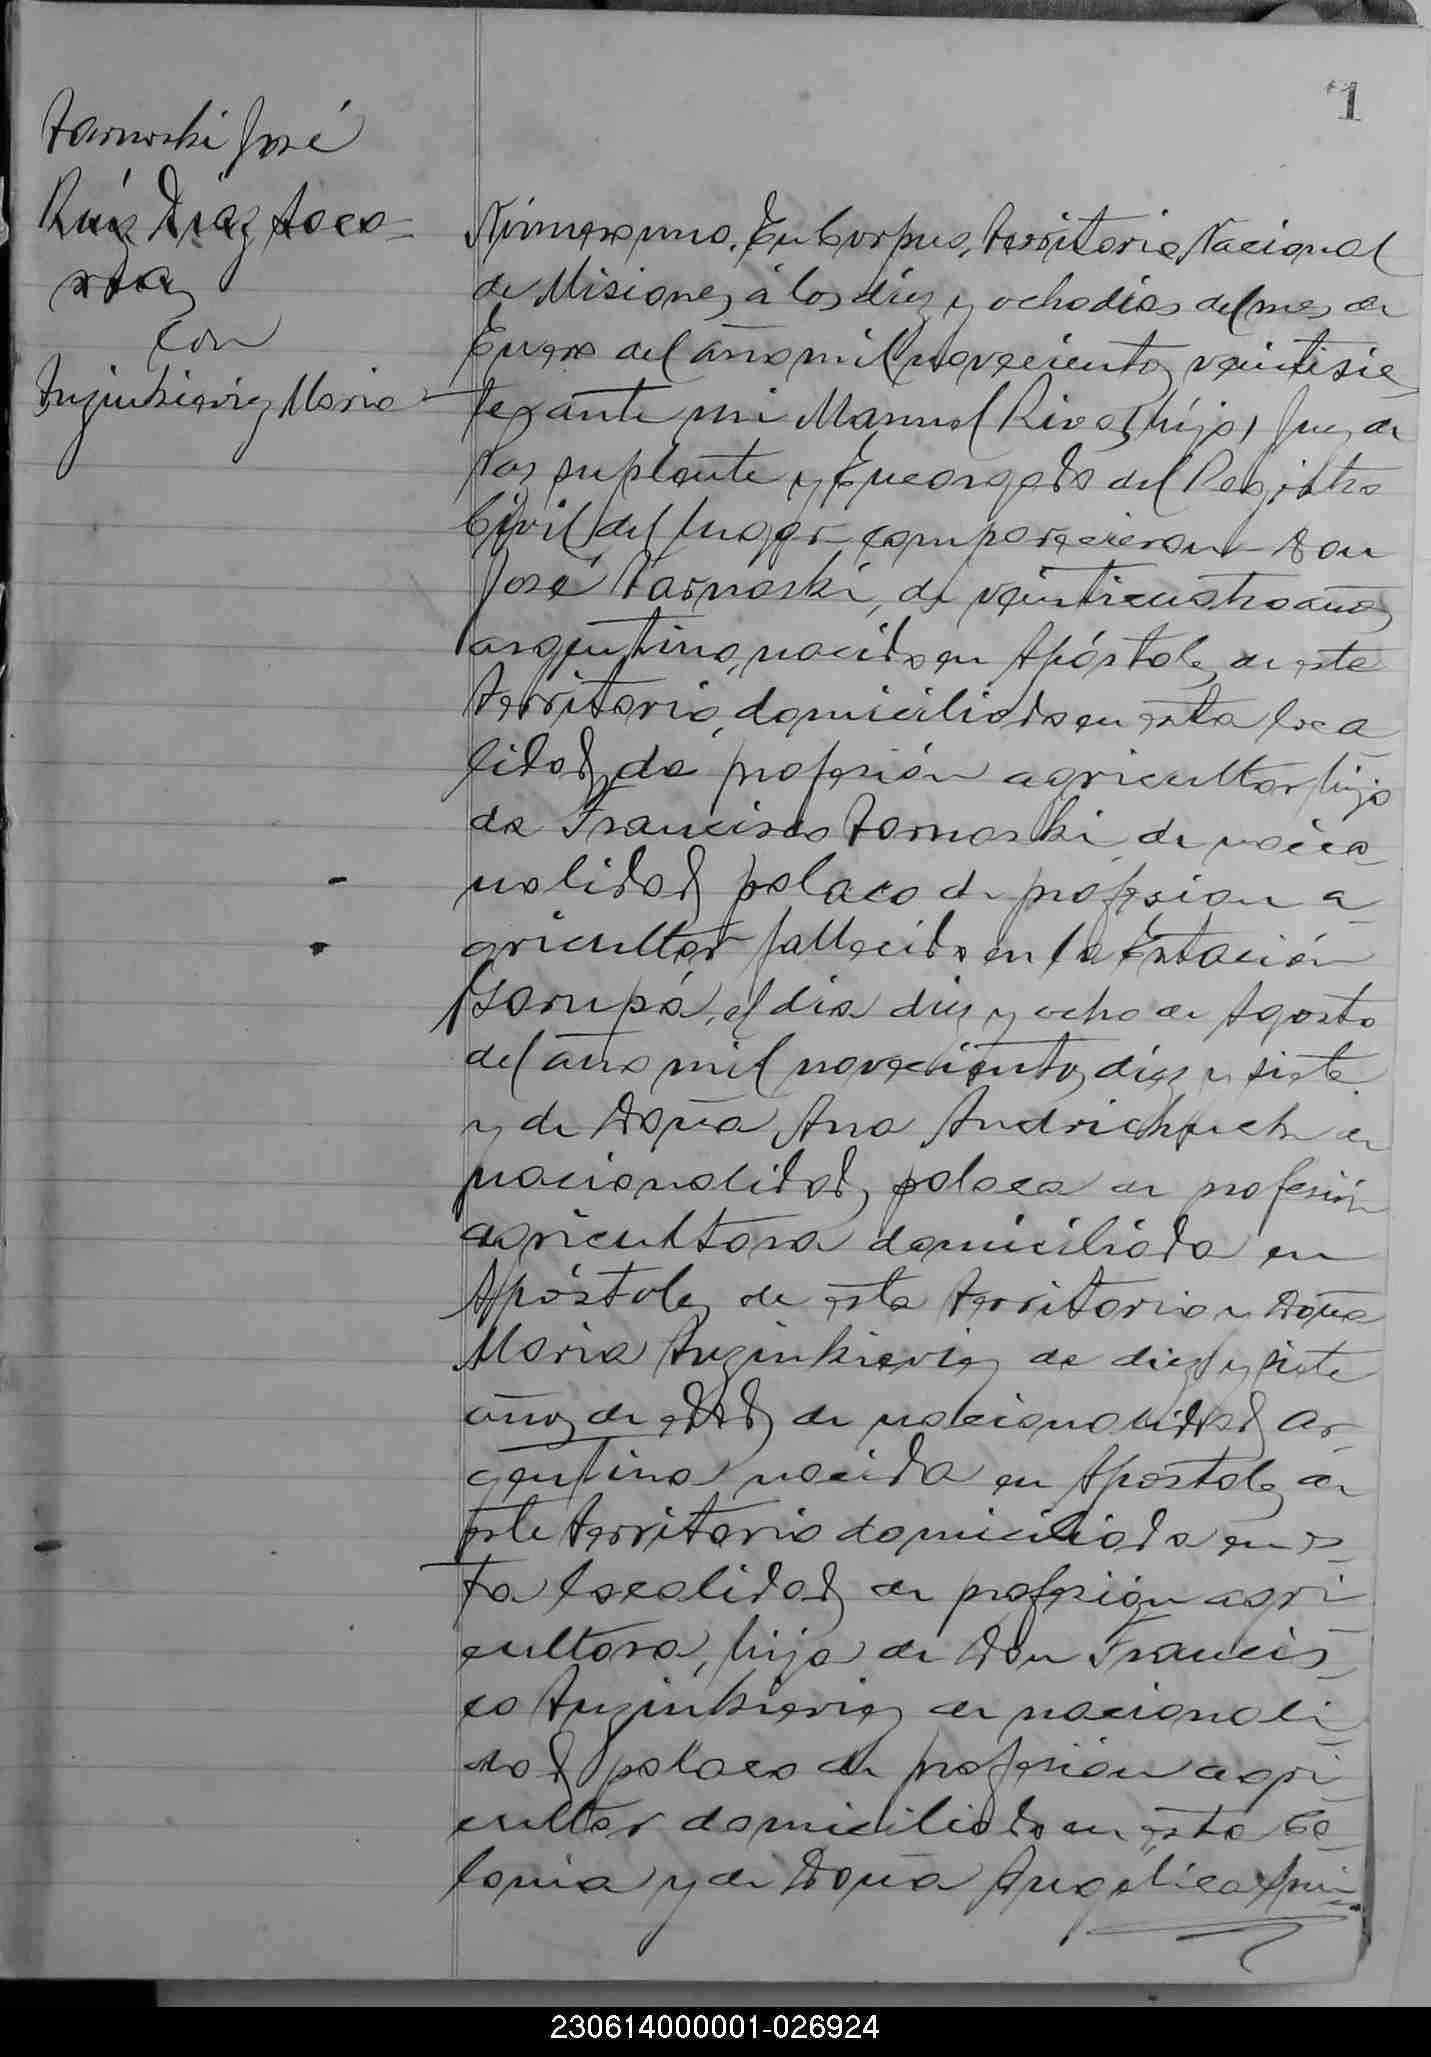 1
Tarnoski José
Ruiz Diaz
con
Maria
Número uno. En Corpus, Territorio Nacional
de Misiones, á los diez y ocho dias del mes de
Enero del año mil novecientos veintisie
te, ante mi Manuel Rivas (hijo) Juez de
Paz suplente y Encargado del Registro
Civil del lugar comparecieron Don
José Tarnoski, de veinticuatro años
argentino, nacido en Apóstoles de este
Territorio, domiciliado en esta loca
lidad, de profesión agricultor, hijo
de Francisco Tarnoski de nacio
nalidad polaco de profesion a
gricultor fallecido en la Estación
Garupá, el dia diez y ocho de Agosto
del año mil novecientos diez y siete
y de Doña Ana de
nacionalidad polaca de profesión
agricultora domiciliada en
Apóstoles de este territorio y Doña
Maria de diez y siete
años de edad de nacionalidad ar
gentina nacida en Apostoles de
este territorio domiciliada en es
ta localidad de profesión agri
cultora, hija de Don Francis
co de nacionali
dad polaco de profesión agri
cultor domiciliado en esta Co
lonia y de Doña Angélica
230614000001-026924